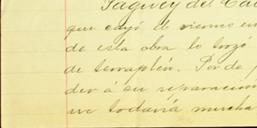 Jagüey del Ca
que cayó el viernes un
de esta obra lo forzó
de terraplén. Por de
der á su reparación
me todavía mucha